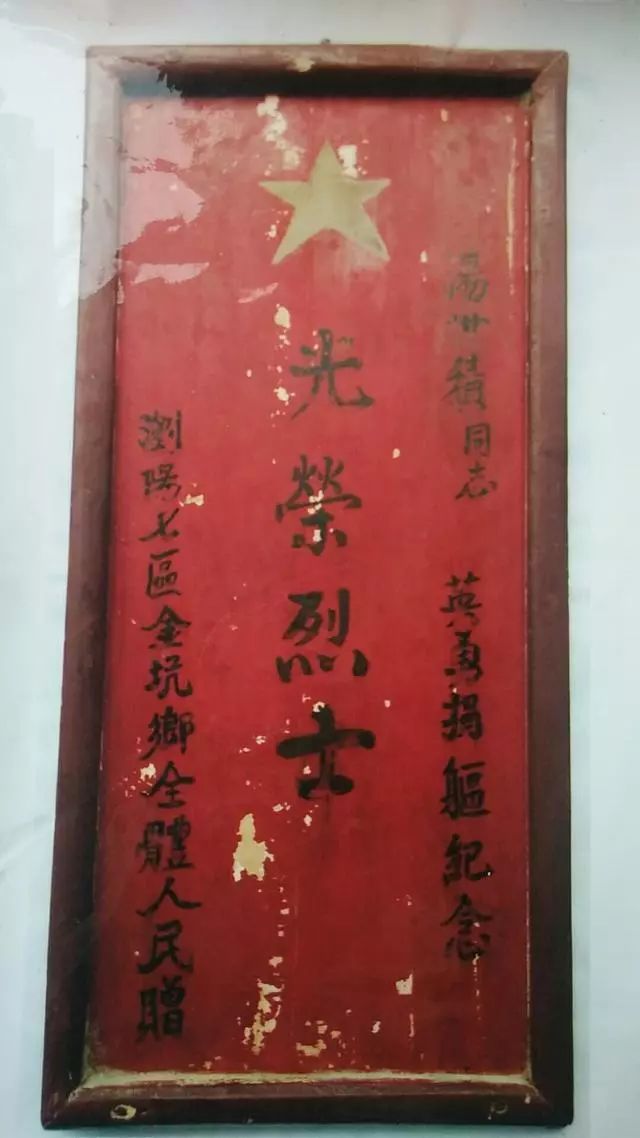 湯世績同志 英勇捐軀紀念
光榮烈士
瀏陽七區金坑鄉全體人民贈